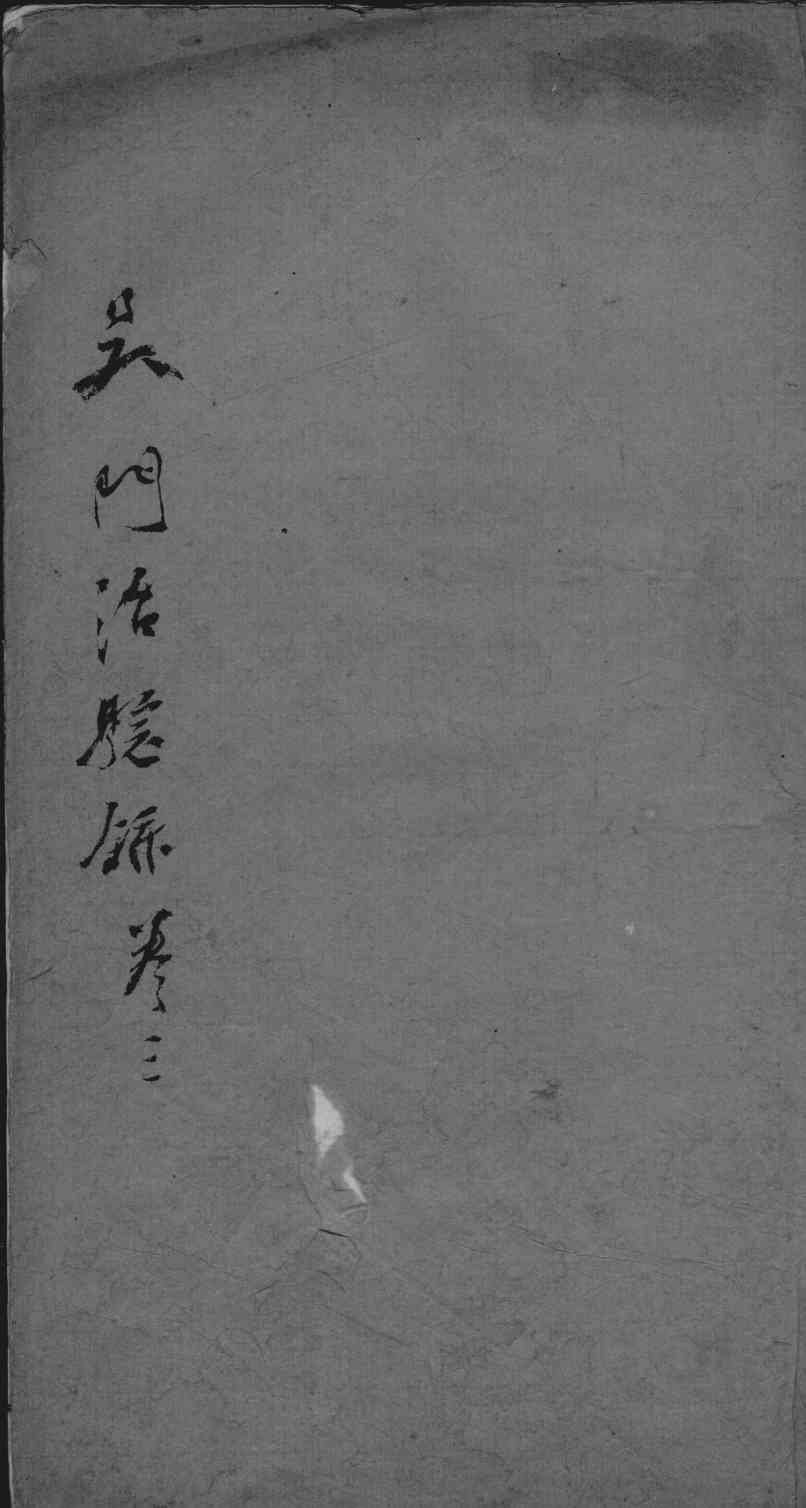 吴門治驗錄卷三